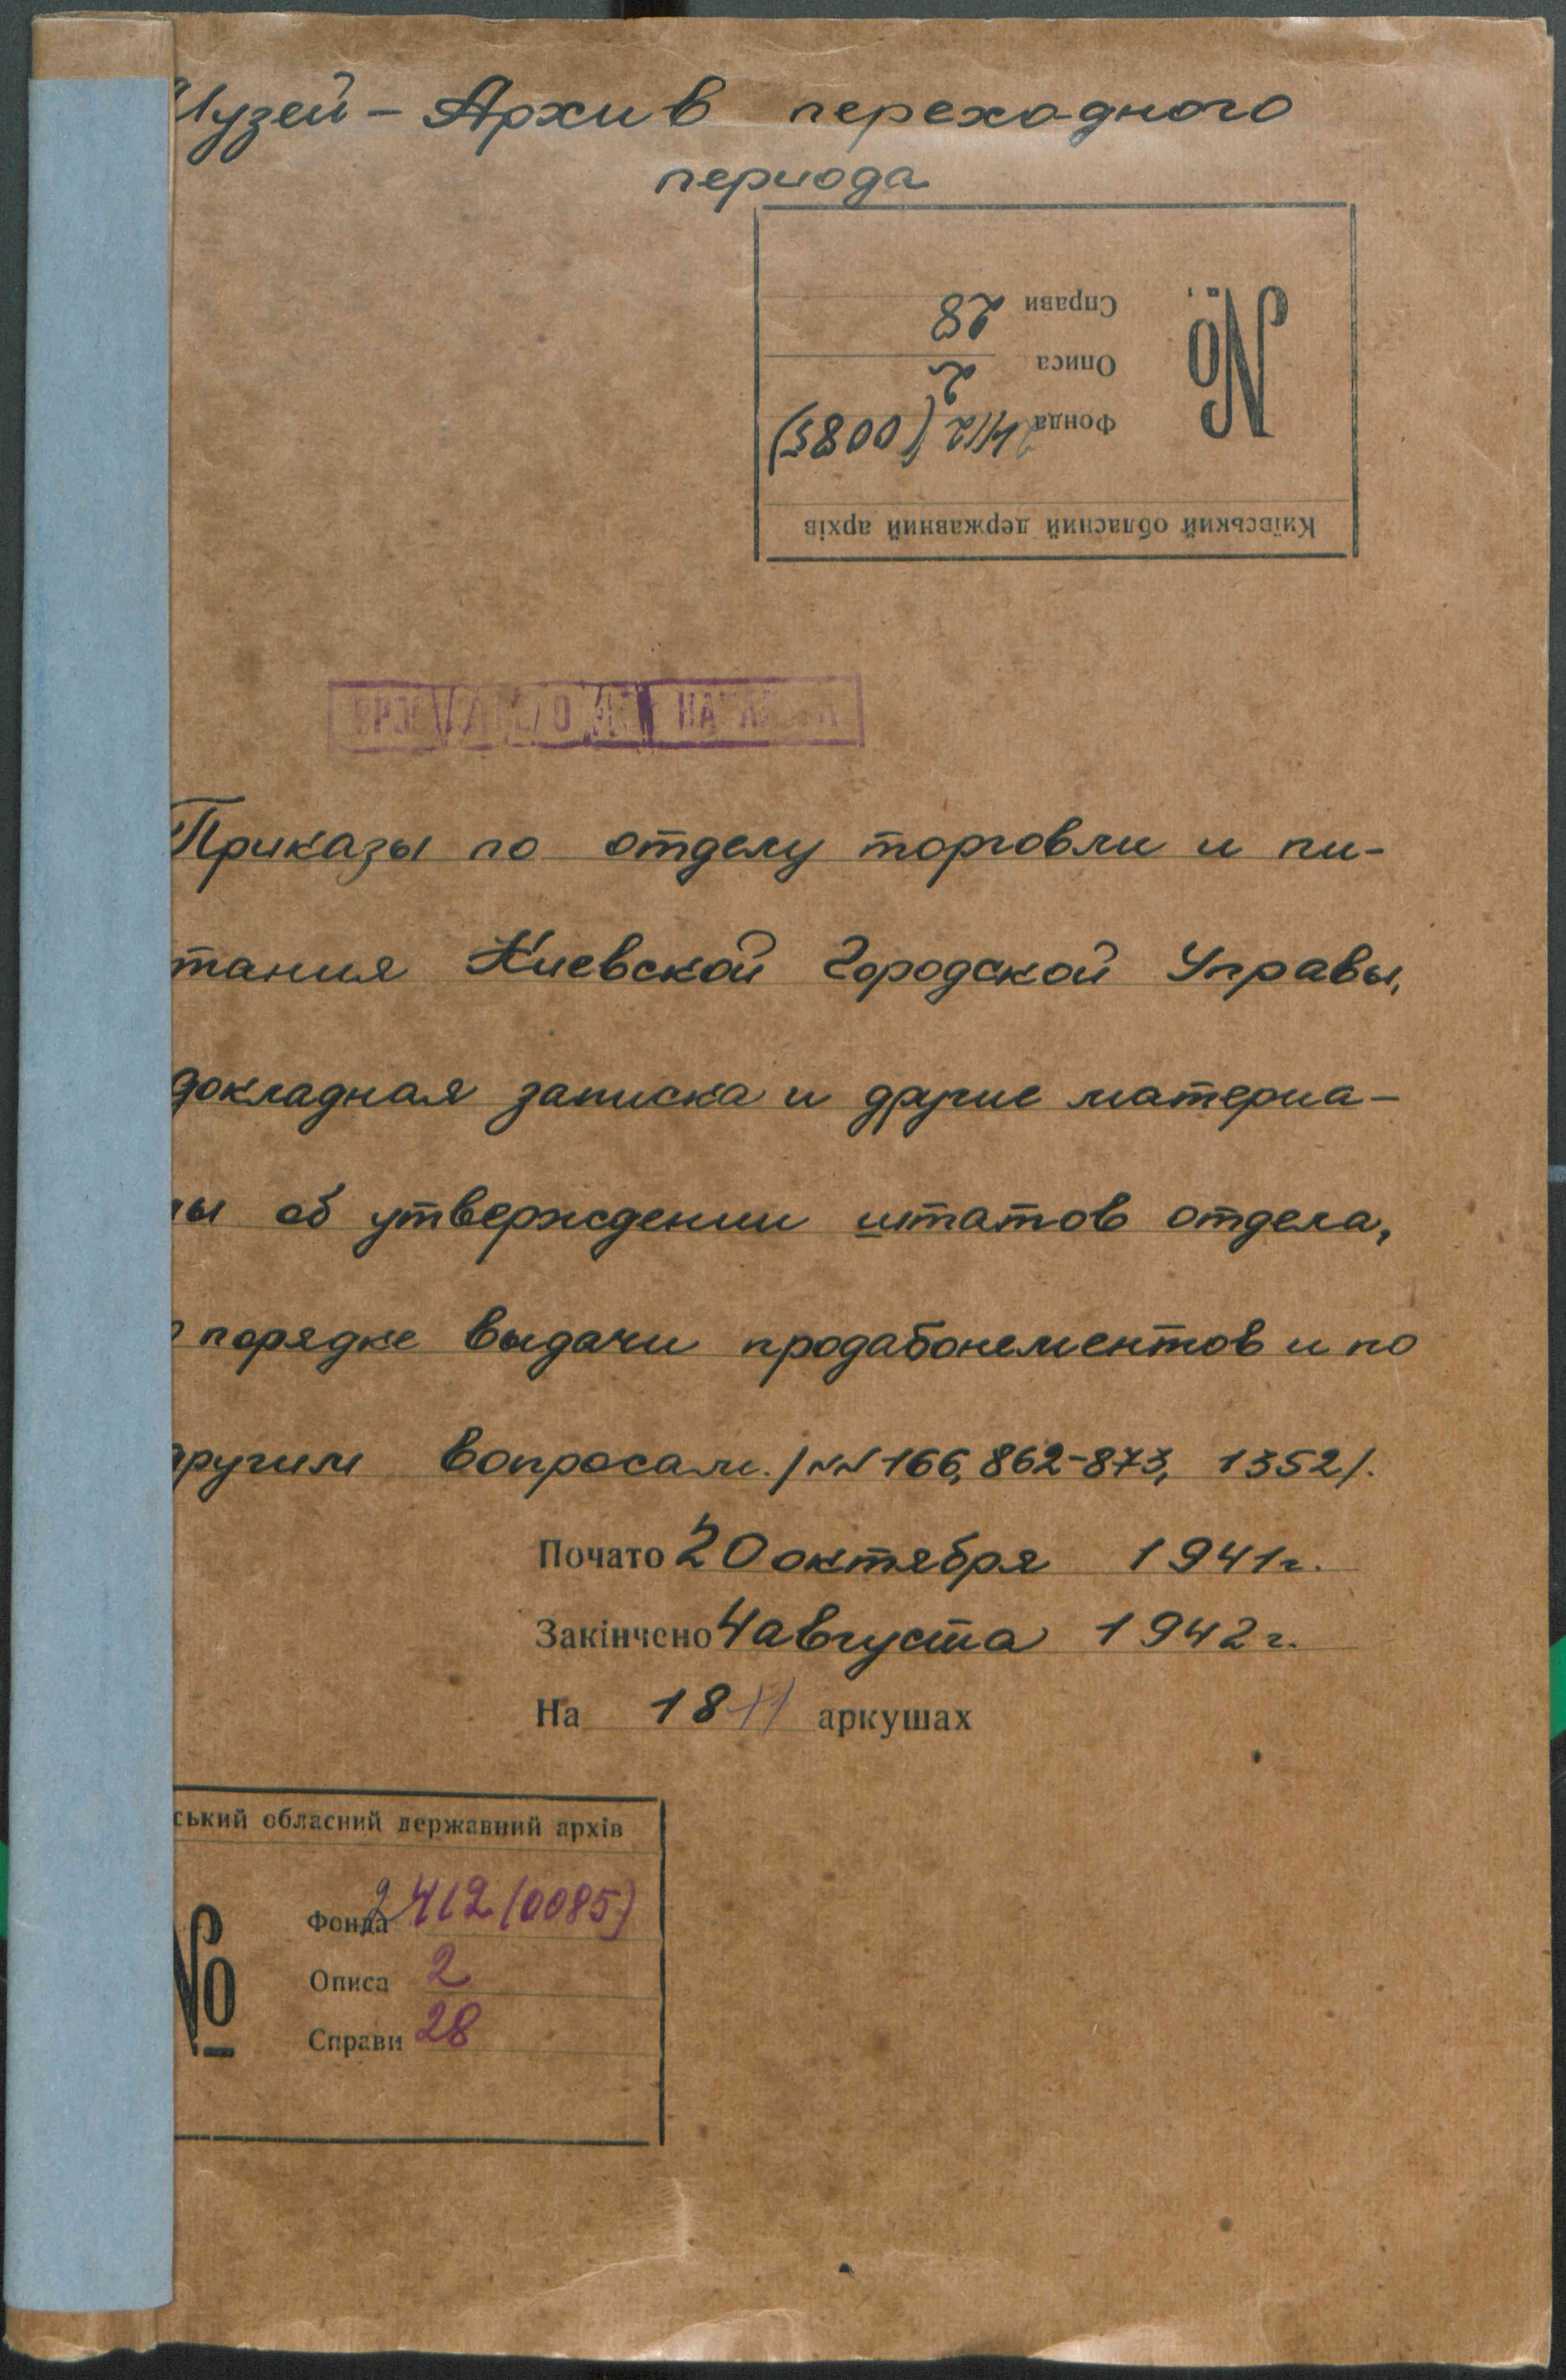 Музей - Архив переходного
периода
Київський обласний державний архів
№
Фонда 2412 (0085)
Описа 2
Справи 28
Приказы по отделу торговли и пи-
тания Киевской Городской Управы,
докладная записка и другие материа-
лы об утверждении штатов отдела,
о порядке выдачи продабонементов и по
другим вопросам. /NN 166, 862-873, 1352/.
Почато 20 октября 1941г.
Закінчено 4 августа 1942г.
На 18 аркушах
ський обласний державний архів
№
Фонда 2412 (0085)
Описа 2
Справи 28